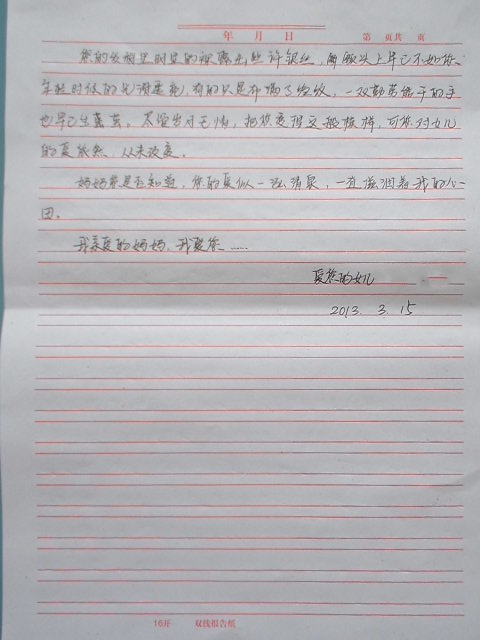 年 月 日 第 页共 页
您的发梢里时显的裸露出些许银丝，面颊上早已不如您
年轻时候的光滑柔和，有的只是布满了皱纹，一双勤劳能干的手
也早已生茧。不惜岁月无情，把您变得这般模样，可您对女儿
的爱依然、从未改变。
妈妈您是否知道，您的爱似一泓清泉，一直滋润着我的心
田。
我亲爱的妈妈，我爱您……
爱您的女儿
2013. 3. 15
16开 双线报告纸